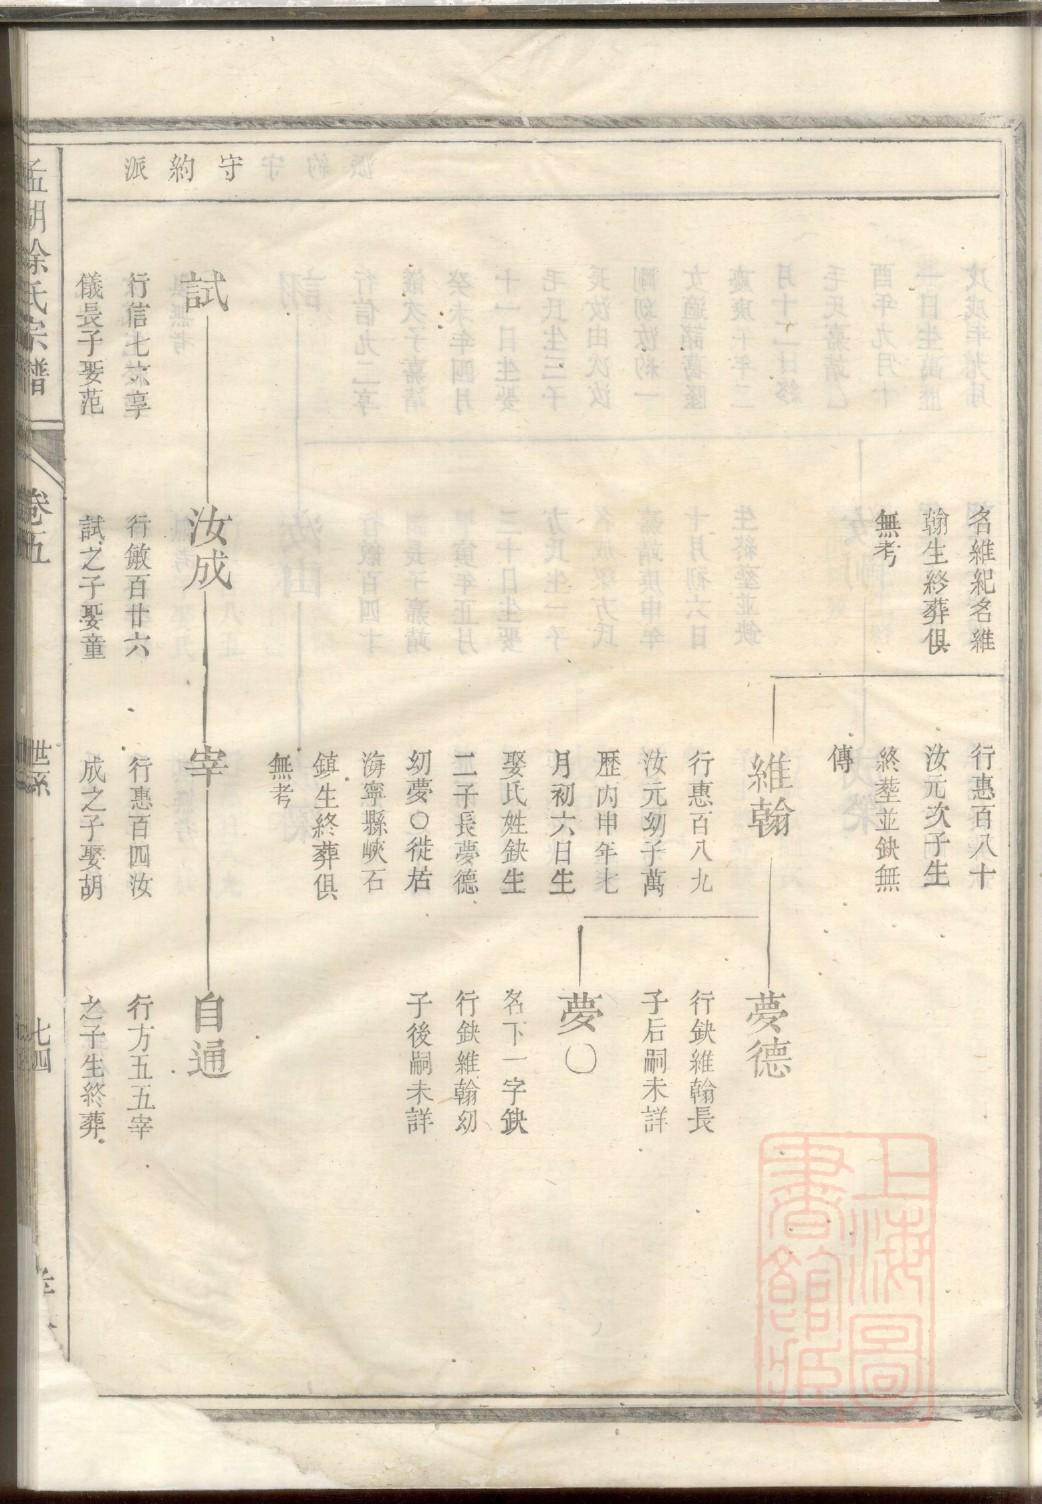 守約派
名維紀名維
翰生終葬俱
無考
行惠百八十
汝元次子生
終塟並缺無
傳
維翰
行惠百八九
汝元幼子萬
歷丙申年七
月初六日生
娶氏姓缺生
二子長夢德
幼夢〇徙居
海寧縣峽石
鎮生終葬俱
無考
夢德
行缺維翰長
子后嗣未詳
夢〇
名下一字缺
行缺維翰幼
子後嗣未詳
試
行信七六享
儀長子娶范
汝成
行敏百廿六
試之子娶童
宰
行惠百四汝
成之子娶胡
自通
行方五五宰
之子生終葬
孟湖徐氏宗譜
卷五
世系
七四
上海圖
書館藏